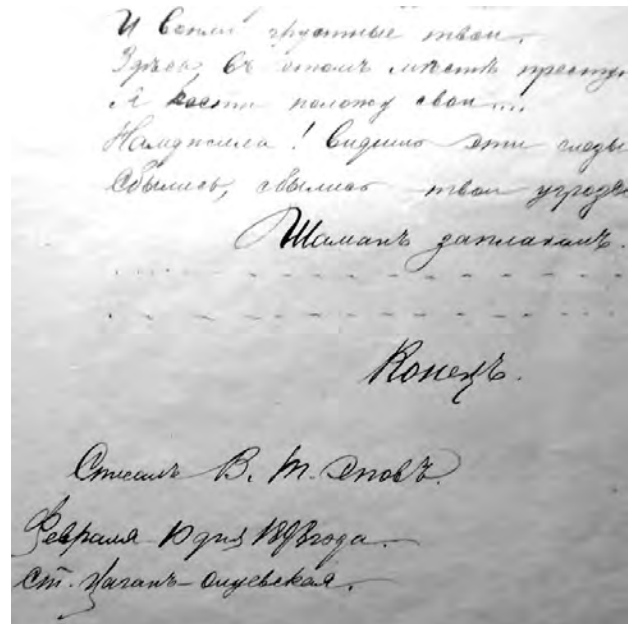 И вопли грустные твои.
Здѣсь, въ этомъ мѣстѣ преступ
Я кости положу свои....
Намджила! видишь эти слезы
Сбылись, сбылись твои угрозы
Шаманъ заплакалъ.
Конецъ.
Списалъ В. М.
Февраля 10 дня 1898 года.
ст. Цаганъ-Олуевская.